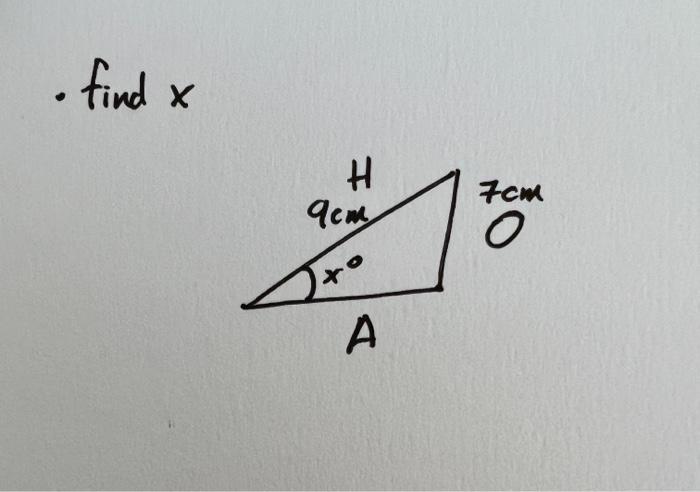 • find x
H
9cm
7cm
O
x°
A